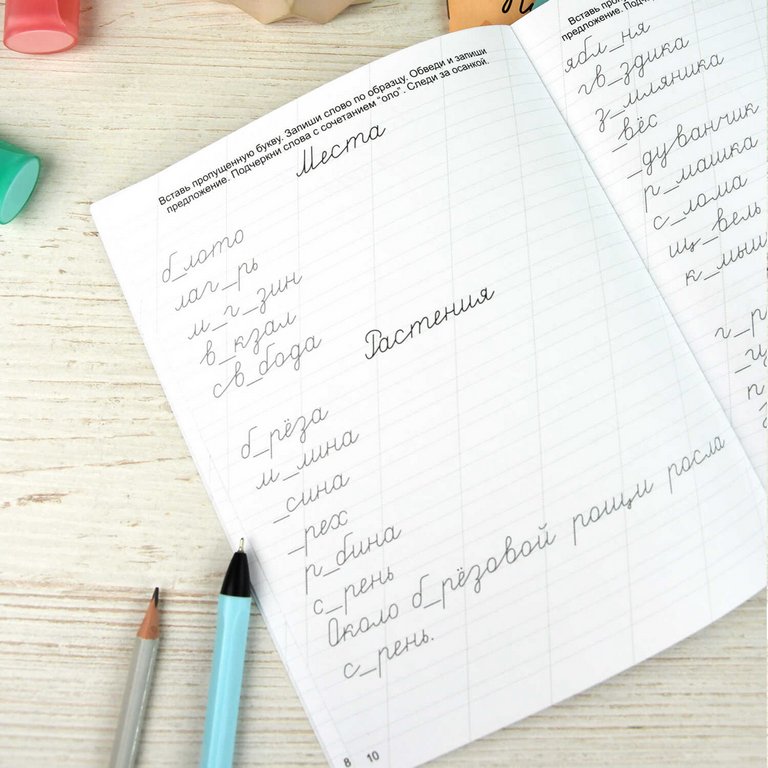 Вставь пропущенную букву. Запиши слово по образцу. Обведи и запиши
предложение. Подчеркни слова с сочетанием "оло". Следи за осанкой.
Места
б_лото
лаг_рь
м_г_зин
в_кзал
св_бода
Растения
б_рёза
м_лина
_сина
_рех
р_бина
с_рень
Около б_рёзовой рощи росла
с_рень.
8 10
Вставь
предложение.
ябл_ня
гв_здика
з_мляника
_вёс
_дуванчик
р_машка
с_лома
щ_вель
к_мыш